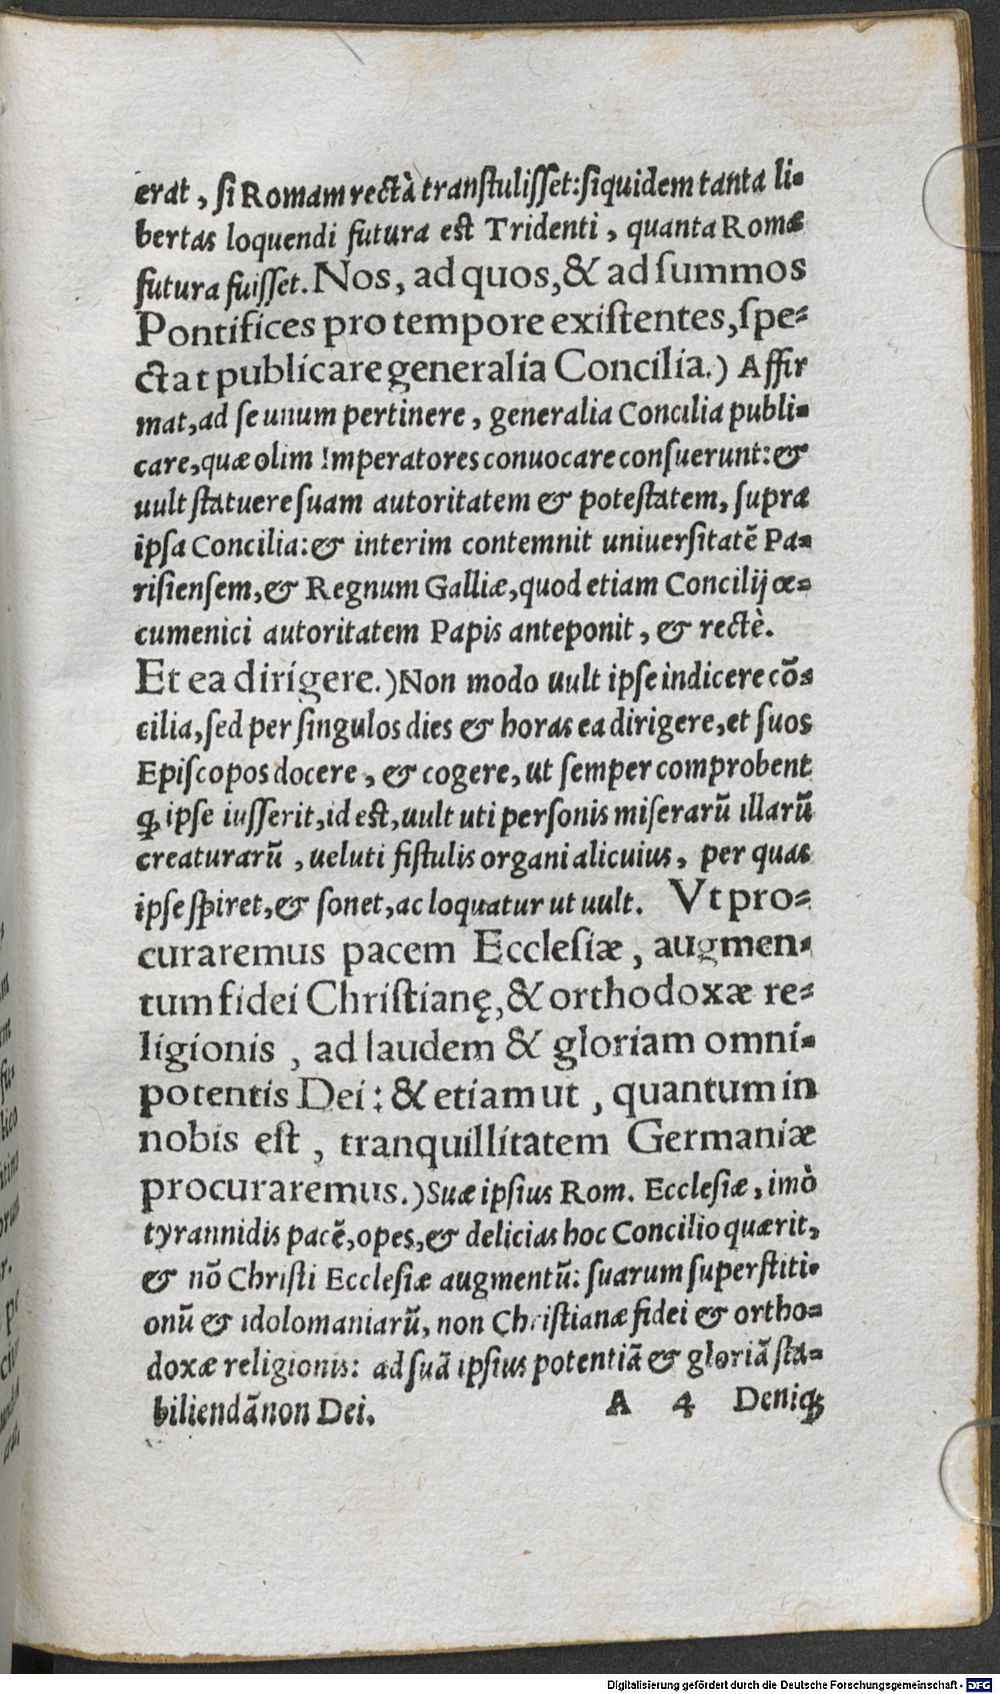 erat, ſi Romam rectà tranſtuliſſet: ſiquidem tanta li-
bertas loquendi futura est Tridenti, quanta Romæ
futura fuiſſet. Nos, ad quos, & ad ſummos
Pontifices pro tempore exiſtentes, ſpe-
ctat publicare generalia Concilia.) Affir
mat, ad ſe unum pertinere, generalia Concilia publi-
care, quæ olim Imperatores conuocare conſuerunt: &
uult ſtatuere ſuam autoritatem & poteſtatem, ſupra
ipſa Concilia: & interim contemnit uniuerſitatẽ Pa-
riſienſem, & Regnum Galliæ, quod etiam Concilij œ-
cumenici autoritatem Papis anteponit, & rectè.
Et ea dirigere.) Non modo uult ipſe indicere cõ-
cilia, ſed per ſingulos dies & horas ea dirigere, et ſuos
Epiſcopos docere, & cogere, ut ſemper comprobent
ꝙ ipſe iuſſerit, id est, uult uti perſonis miſerarũ illarũ
creaturarũ, ueluti fiſtulis organi alicuius, per quas
ipſe ſpiret, & ſonet, ac loquatur ut uult. Vt pro-
curaremus pacem Eccleſiæ, augmen-
tum fidei Chriſtianę, & orthodoxæ re-
ligionis, ad laudem & gloriam omni-
potentis Dei: & etiam ut, quantum in
nobis eſt, tranquillitatem Germaniæ
procuraremus.) Suæ ipſius Rom. Eccleſiæ, imò
tyrannidis pacẽ, opes, & delicias hoc Concilio quærit,
& nõ Chriſti Eccleſiæ augmentũ: ſuarum ſuperſtiti-
onũ & idolomaniarũ, non Chriſtianæ fidei & ortho-
doxæ religionis: ad ſuã ipſius potentiã & gloriã ſta-
biliendã non Dei. A 4 Deniqꝫ
Digitalisierung gefördert durch die Deutsche Forschungsgemeinschaft - DFG